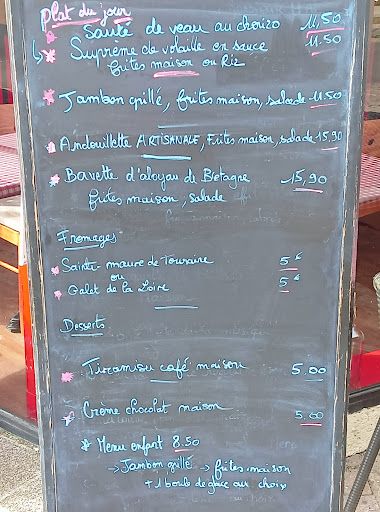 Plat du jour
Sauté de veau au chorizo 11,50
Suprême de volaille en sauce 11.50
frites maison ou Riz
Jambon grillé, frites maison, salade 11.50
Andouillette ARTISANALE, Frites maison, salade 15,90
Bavette d'aloyau de Bretagne 15,90
frites maison, salade
Fromages
Sainte maure de Touraine 5€
ou
Galet de la Loire 5€
Desserts
Tiramisu café maison 5.00
Crème chocolat maison 5,00
* Menu enfant 8.50
→ Jambon grillé → frites maison
+ 1 boule de glace au choix